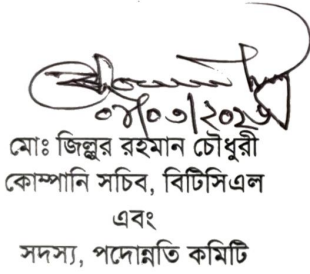 মোঃ জিল্লুর রহমান চৌধুরী
কোম্পানি সচিব, বিটিসিএল
এবং
সদস্য, পদোন্নতি কমিটি